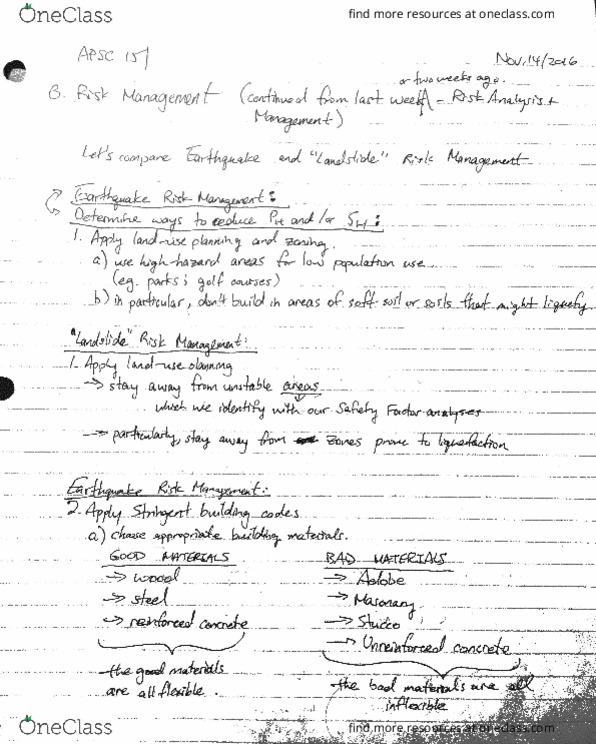 OneClass
find more resources at oneclass.com
APSC 151
Nov. 14/2016
or two weeks ago.
B. Risk Management (continued from last week) - Risk Analysis +
Management)
Let's compare Earthquake and "Landslide" Risk Management
Earthquake Risk Management:
Determine ways to reduce PH and/or SH:
1. Apply land-use planning and zoning.
a) use high-hazard areas for low population use
(eg. parks; golf courses)
b) in particular, don't build in areas of soft soil or soils that might liquefy
"Landslide" Risk Management:
1. Apply land-use planning
→ stay away from unstable areas
which we identify with our Safety Factor analyses
→ particularly, stay away from zones prone to liquefaction
Earthquake Risk Management:
2. Apply Stringent building codes
a) choose appropriate building materials.
GOOD MATERIALS BAD MATERIALS
→ wood → Adobe
→ steel → Masonary
→ reinforced concrete → Stucco
→ Unreinforced concrete
the good materials the bad materials are all
are all flexible. inflexible
OneClass
find more resources at oneclass.com